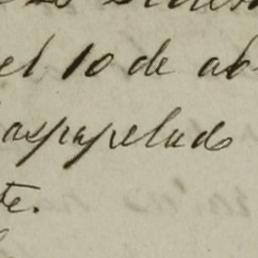 el 10 de ab
aspapelado
te.